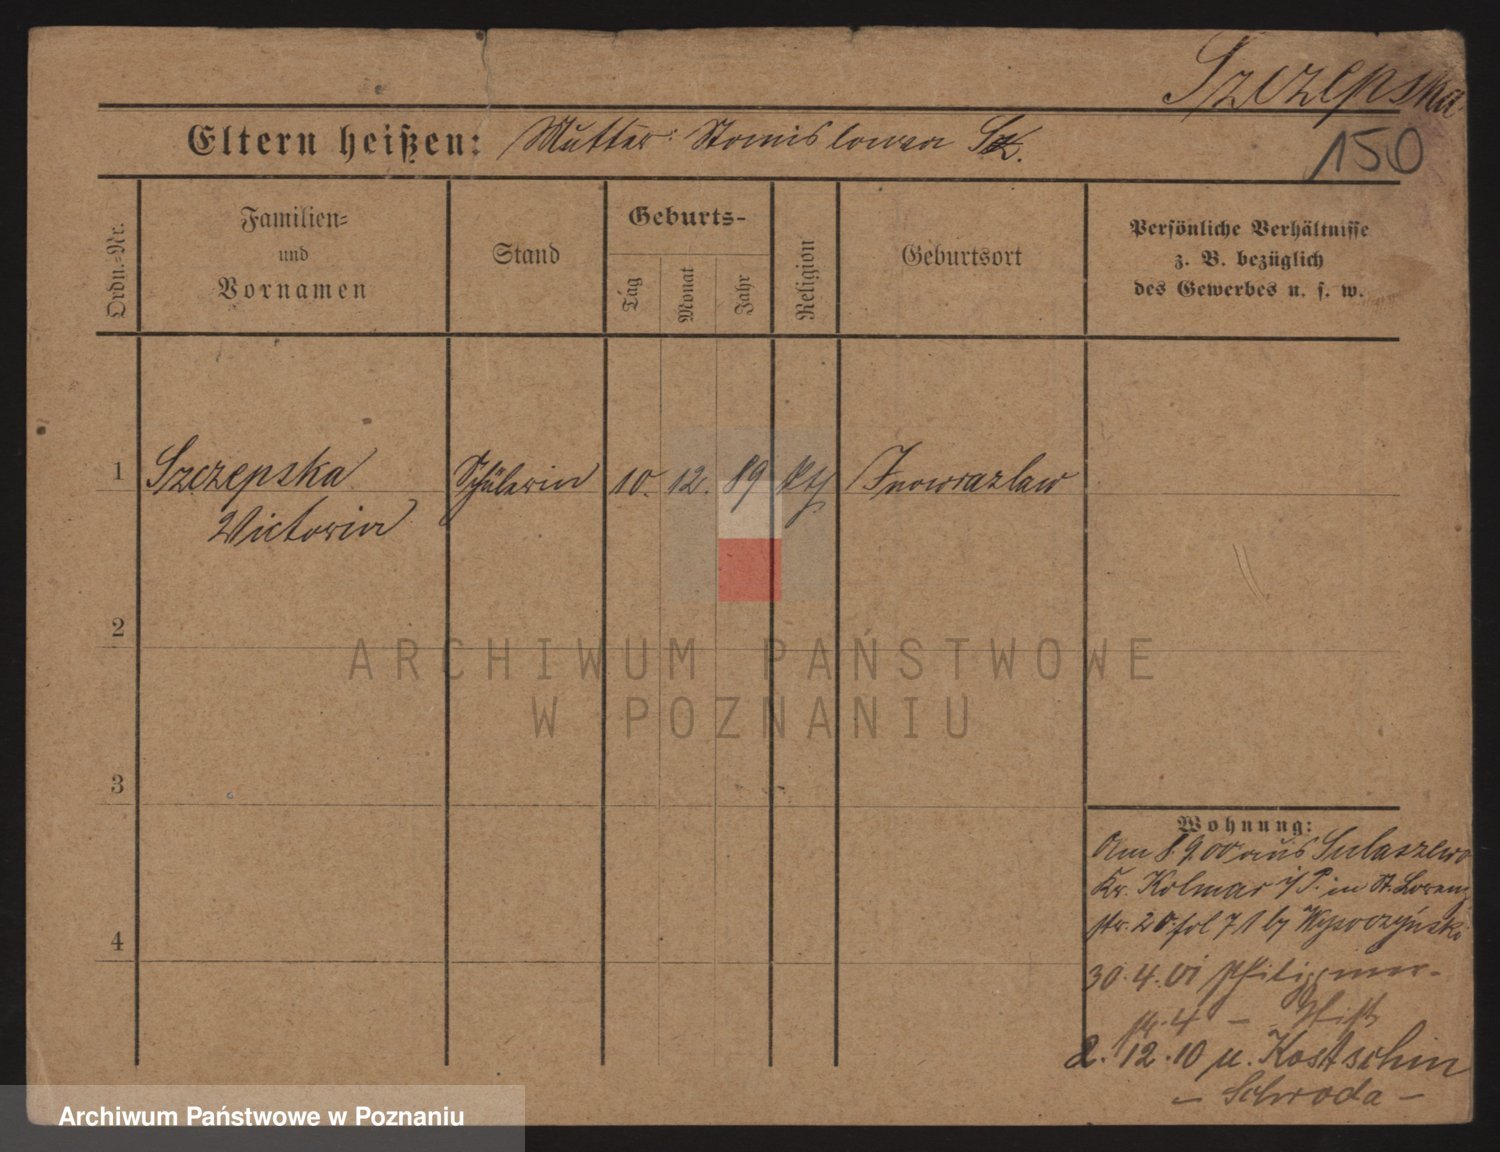 Szczepska
Eltern heißen: Mutter: Stanislawa Sz.
150
Ordn.-Nr.
Familien-
und
Vornamen
Stand
Geburts-
Tag
Monat
Jahr
Religion
Geburtsort
Persönliche Verhältnisse
z. B. bezüglich
des Gewerbes u. s. w.
1 Szczepska Schülerin 10. 12. 89 kth Inowrazlaw
Victoria
2
ARCHIWUM PAŃSTWOWE
W POZNANIU
3
Wohnung:
Am 8.9.00 aus Sulaszewo
Kr. Kolmar i/P. in St. Lorenz
str. 20 fol 71 by Wysoczyński
4
30.4.01
str. 4 –
2.12.10 n. Kostschin
– Schroda –
Archiwum Państwowe w Poznaniu